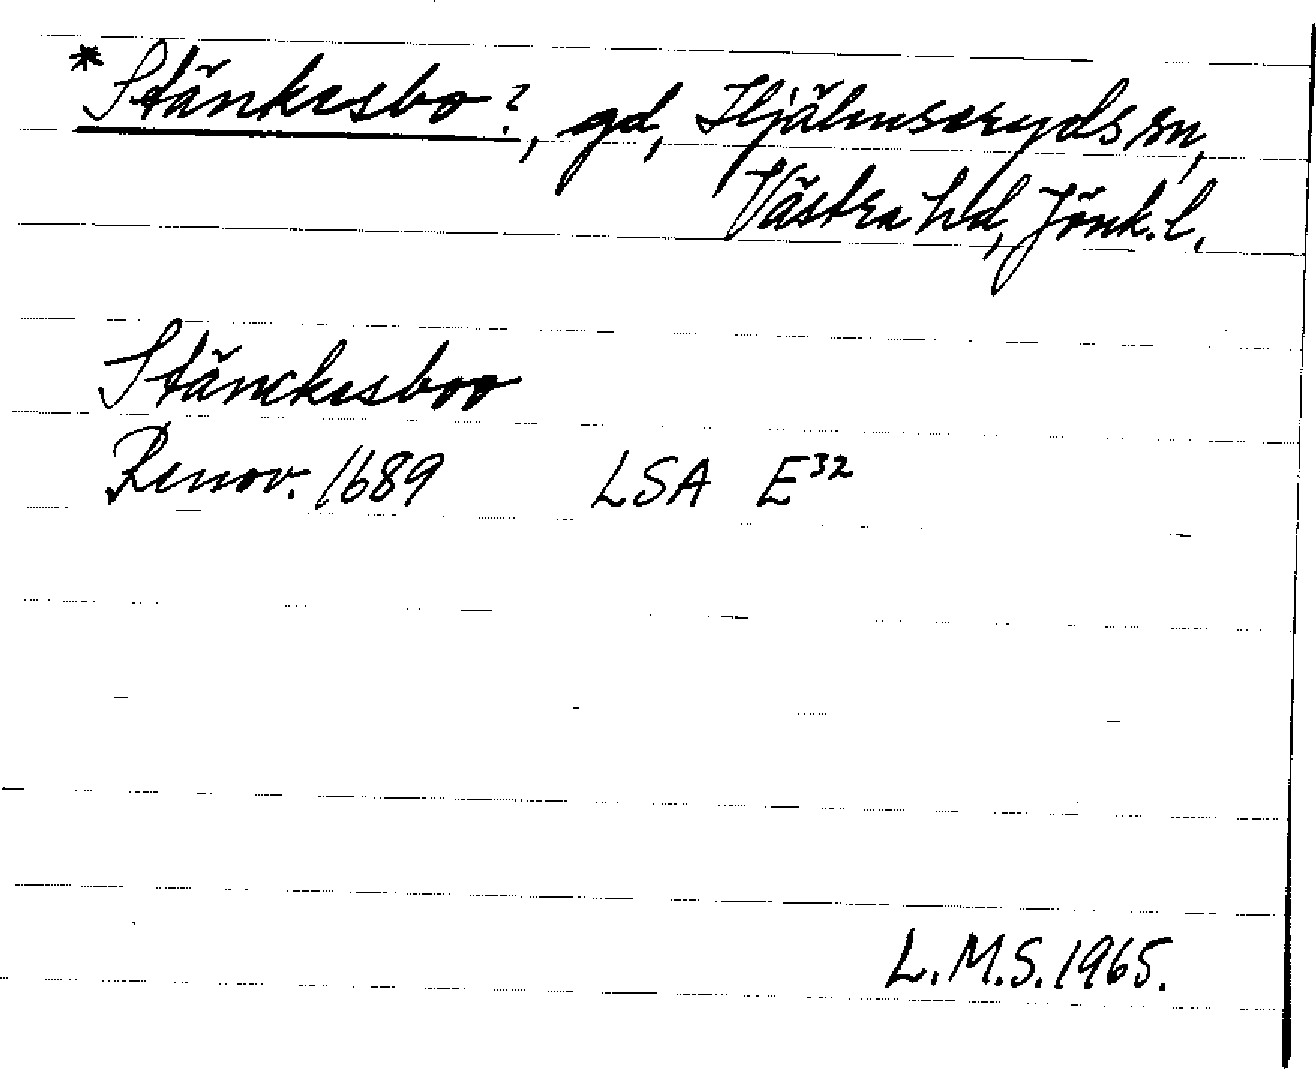 *Stänkesbo?, gd, Hjälmseryds sn,
Västra hd, Jönk. l.
Stänckesboo
Renov. 1689 LSA E³²
L.M.S. 1965.